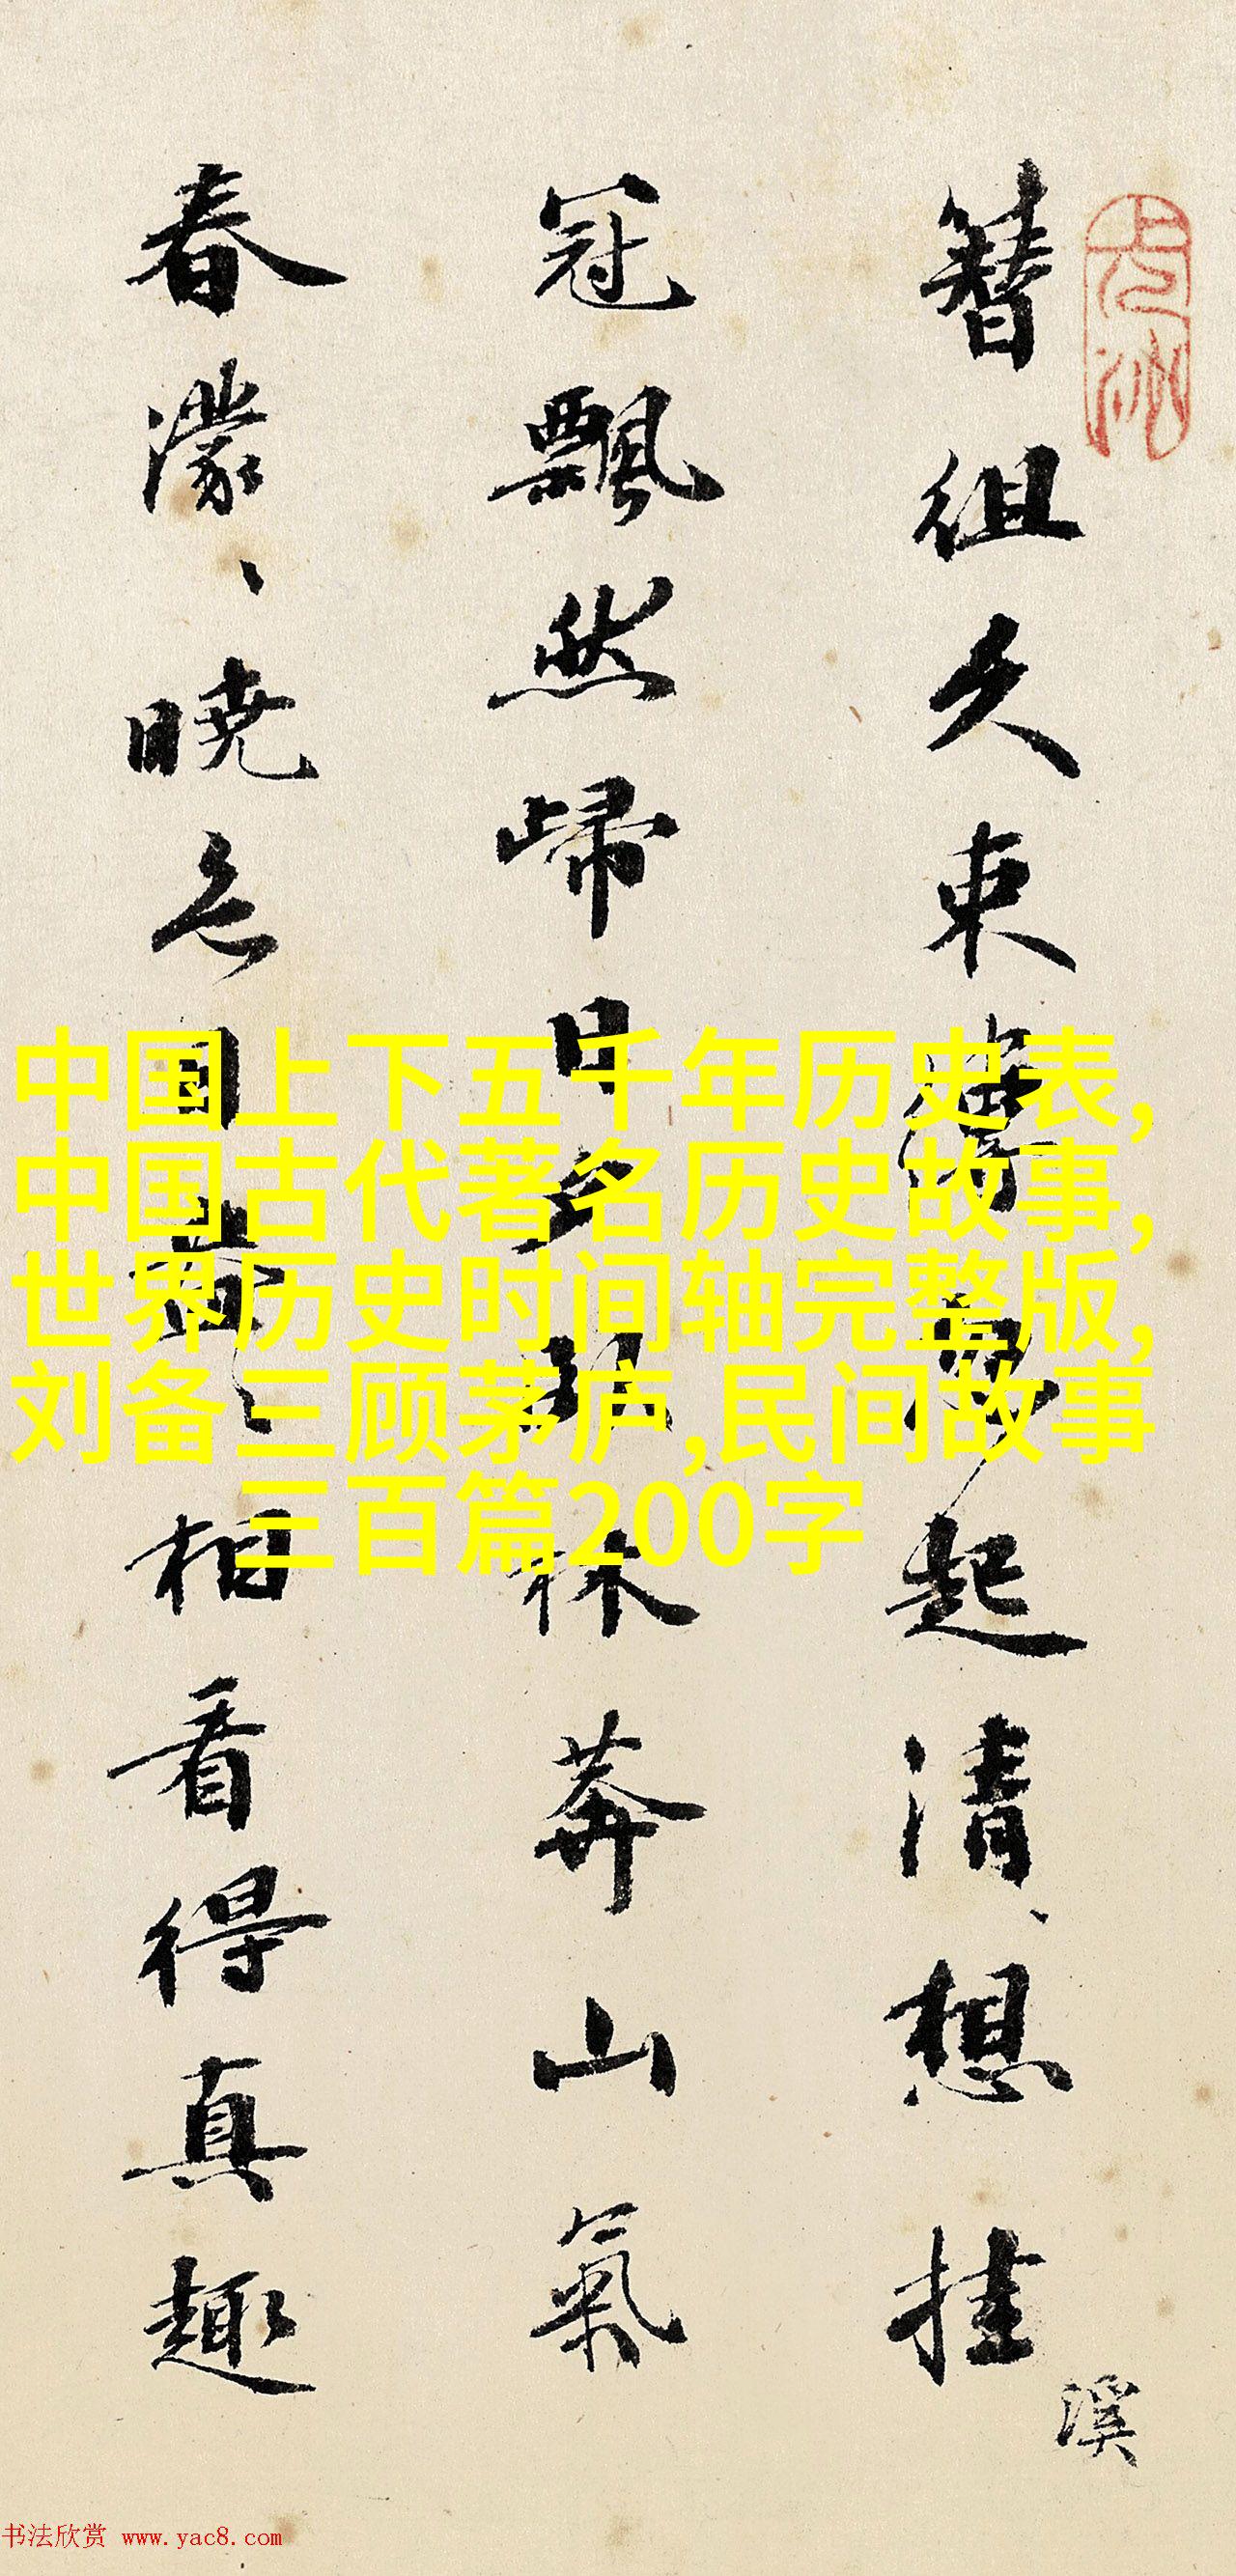 簪組久束縛易起清、想挂
溪
冠飄然歸日夕臥林莽山氣
春濛、曉色自蒼、相看得真趣
中国上下五千年历史表,
中国古代著名历史故事,
世界历史时间轴完整版,
刘备三顾茅庐,民间故事
三百篇200字
书法欣赏 www.yac8.com